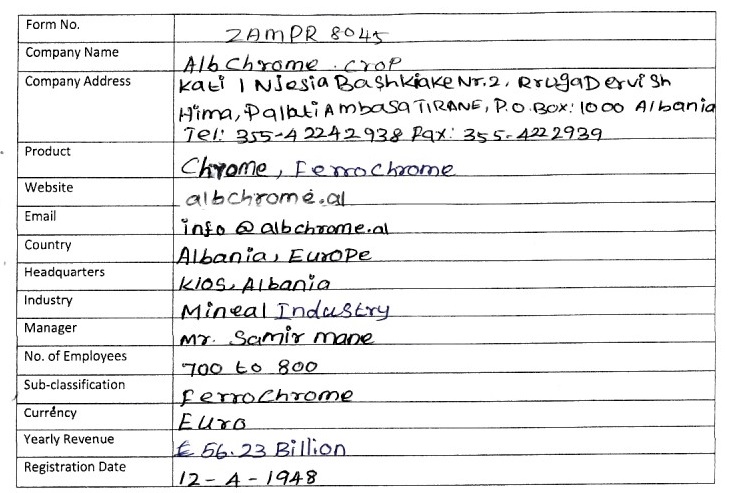 Form No. ZAMPR 8045
Company Name AlbChrome .crop
Company Address Kati 1 Njesia Bashkiake Nr.2, Rruga Dervish
Hima, Pallati Ambasa TIRANE, P.O.BOX: 1000 Albania
Tel: 355-4 2242938 Fax: 355-4222939
Product Chrome, Ferrochrome
Website albchrome.al
Email info@albchrome.al
Country Albania, Europe
Headquarters Klos, Albania
Industry Mineal Industry
Manager Mr. Samir mane
No. of Employees 700 to 800
Sub-classification Ferrochrome
Currency Euro
Yearly Revenue £ 56.23 Billion
Registration Date 12-4-1948